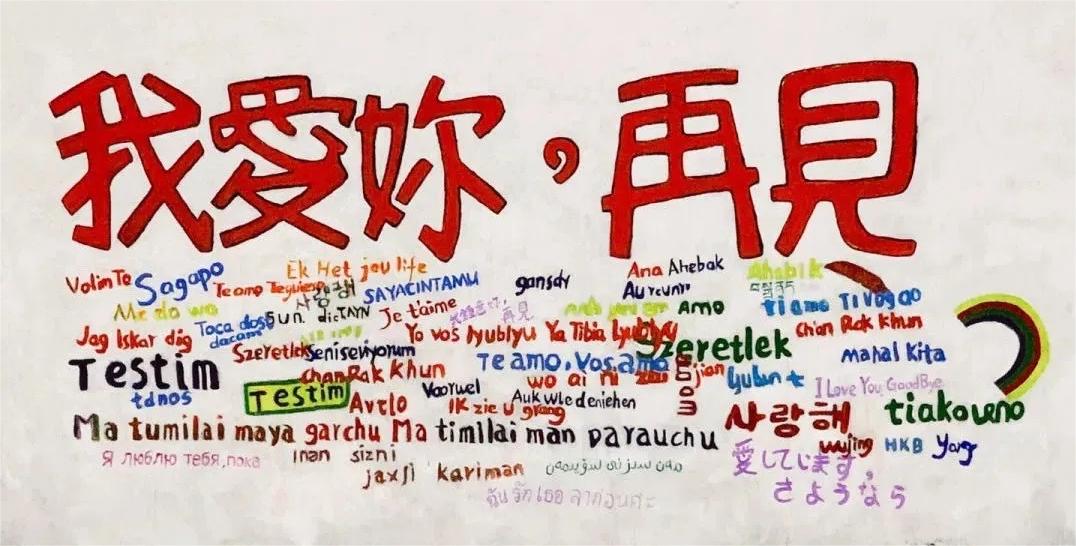 我愛妳，再見
Ek Het jou life
Ana Ahebak
Ahabik
VolimTe Sagapo
Teamo
사랑해 SAYACINTAMU
gansdy
Je t'aime
Amo
ti amo
Me do wo
Jag Iskar dig
Yo vos lyublyu Ya Tibia Lyublyu
Chan Rak Khun
Szeretlek Seniseviyorum
Te amo, Vos amo
Szeretlek
Mahal Kita
Testim
Chan Rak Khun
wo ai ni
I Love You GoodBye
tdnos
Testim
Avtlo
IK zie U grang
사랑해
tiakoueno
Ma tumilai maya garchu Ma timilai man parauchu
wujing HKB Yang
Я люблю тебя,пока
inan sizni
愛しています,
jaxsi kariman
さようなら
ฉัน รัก เธอ ลาก่อนค่ะ